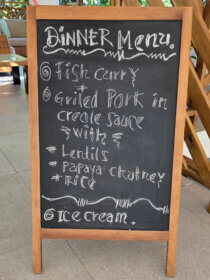 DINNER Menu.
Fish curry
Grilled Pork in
creole sauce
with
* Lentils
* Papaya chutney
* Rice
Ice cream.